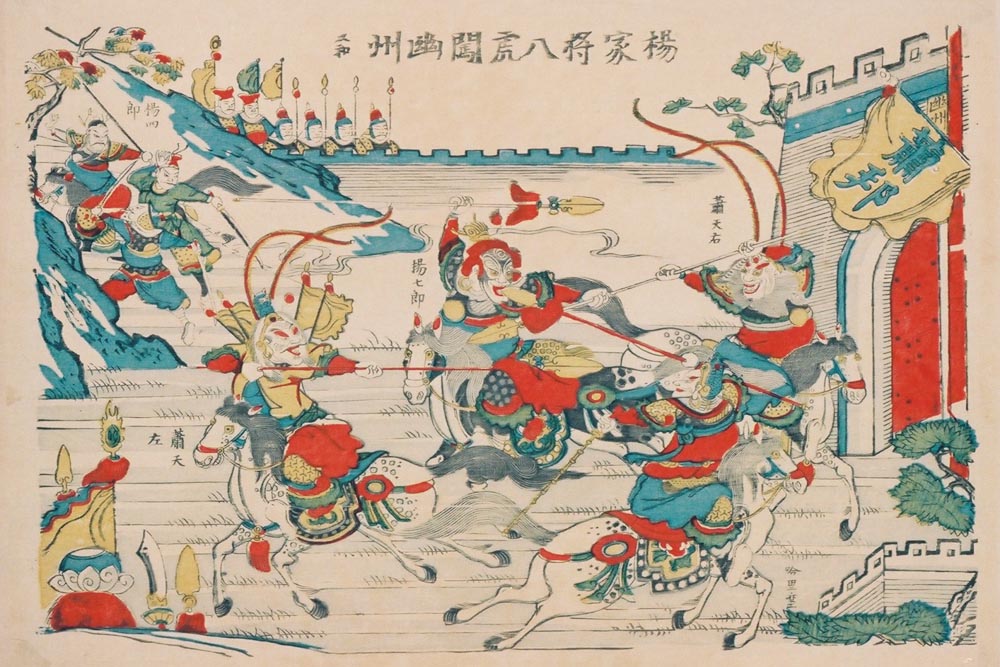 楊家將八虎闖幽州
义和
幽州
蕭邦
蕭天右
揚七郎
楊四郎
蕭天左
哈里